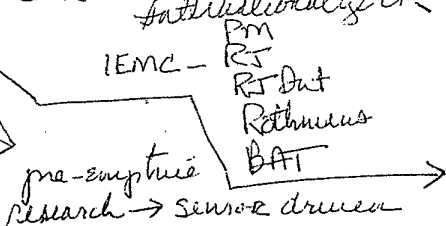 PM
IEMC – RJ
RJ Dat
Rothmans
BAT
pre-emptive
research → sensor driven